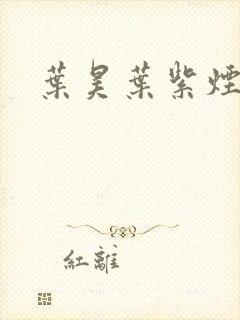 葉昊葉紫煙
紅離